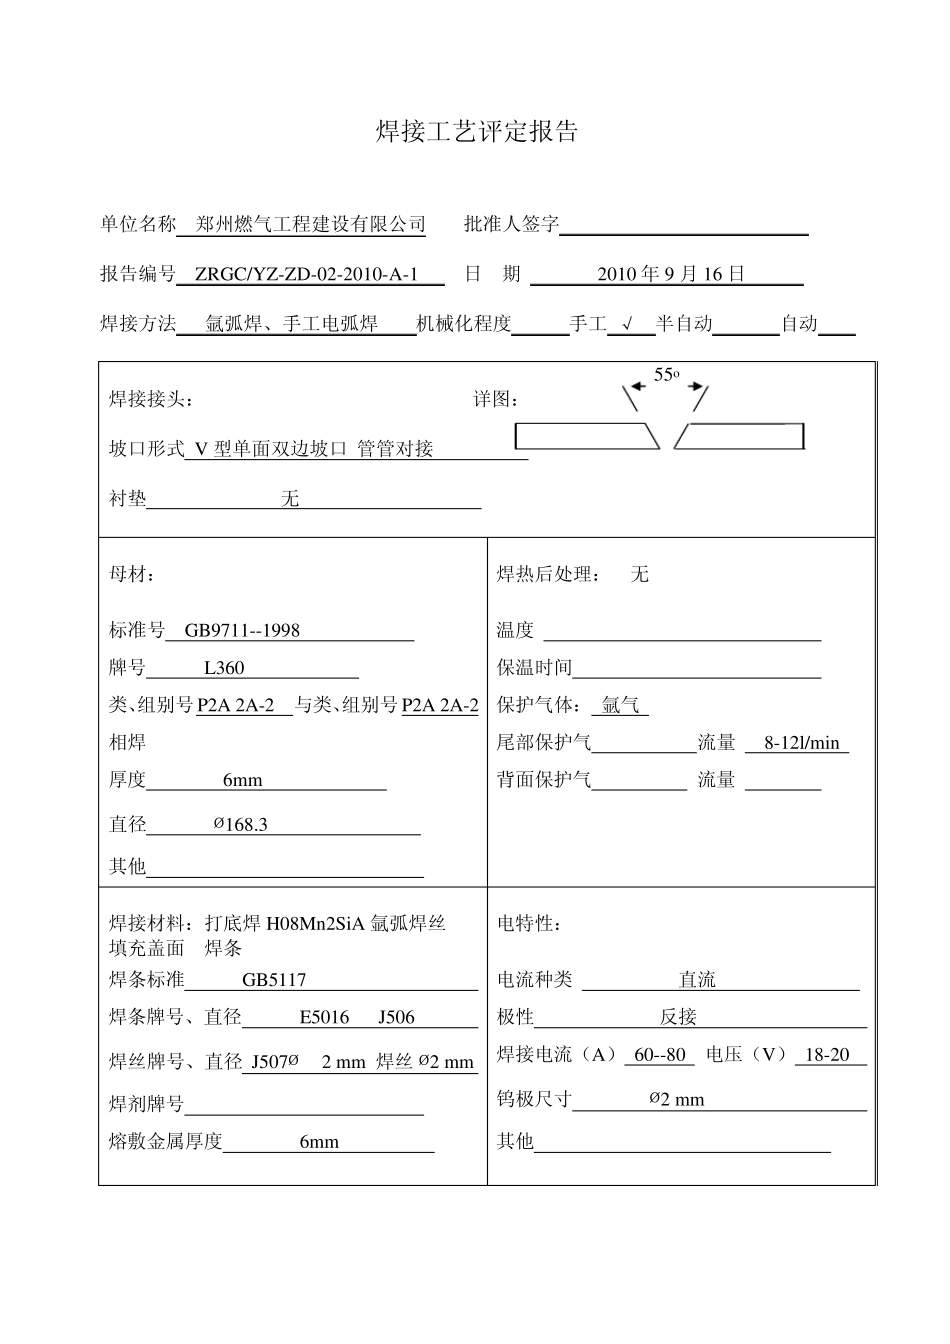 焊接工艺评定报告
单位名称 郑州燃气工程建设有限公司 批准人签字
报告编号 ZRGC/YZ-ZD-02-2010-A-1 日 期 2010 年 9 月 16 日
焊接方法 氩弧焊、手工电弧焊 机械化程度 手工 √ 半自动 自动
55°
焊接接头： 详图：
坡口形式 V 型单面双边坡口 管管对接
衬垫 无
母材：
标准号 GB9711--1998
牌号 L360
类、组别号 P2A 2A-2 与类、组别号 P2A 2A-2
相焊
厚度 6mm
直径 Ø168.3
其他
焊热后处理： 无
温度
保温时间
保护气体： 氩气
尾部保护气 流量 8-12l/min
背面保护气 流量
焊接材料：打底焊 H08Mn2SiA 氩弧焊丝
填充盖面 焊条
焊条标准 GB5117
焊条牌号、直径 E5016 J506
焊丝牌号、直径 J507Ø 2 mm 焊丝 Ø2 mm
焊剂牌号
熔敷金属厚度 6mm
电特性：
电流种类 直流
极性 反接
焊接电流（A） 60--80 电压（V） 18-20
钨极尺寸 Ø2 mm
其他